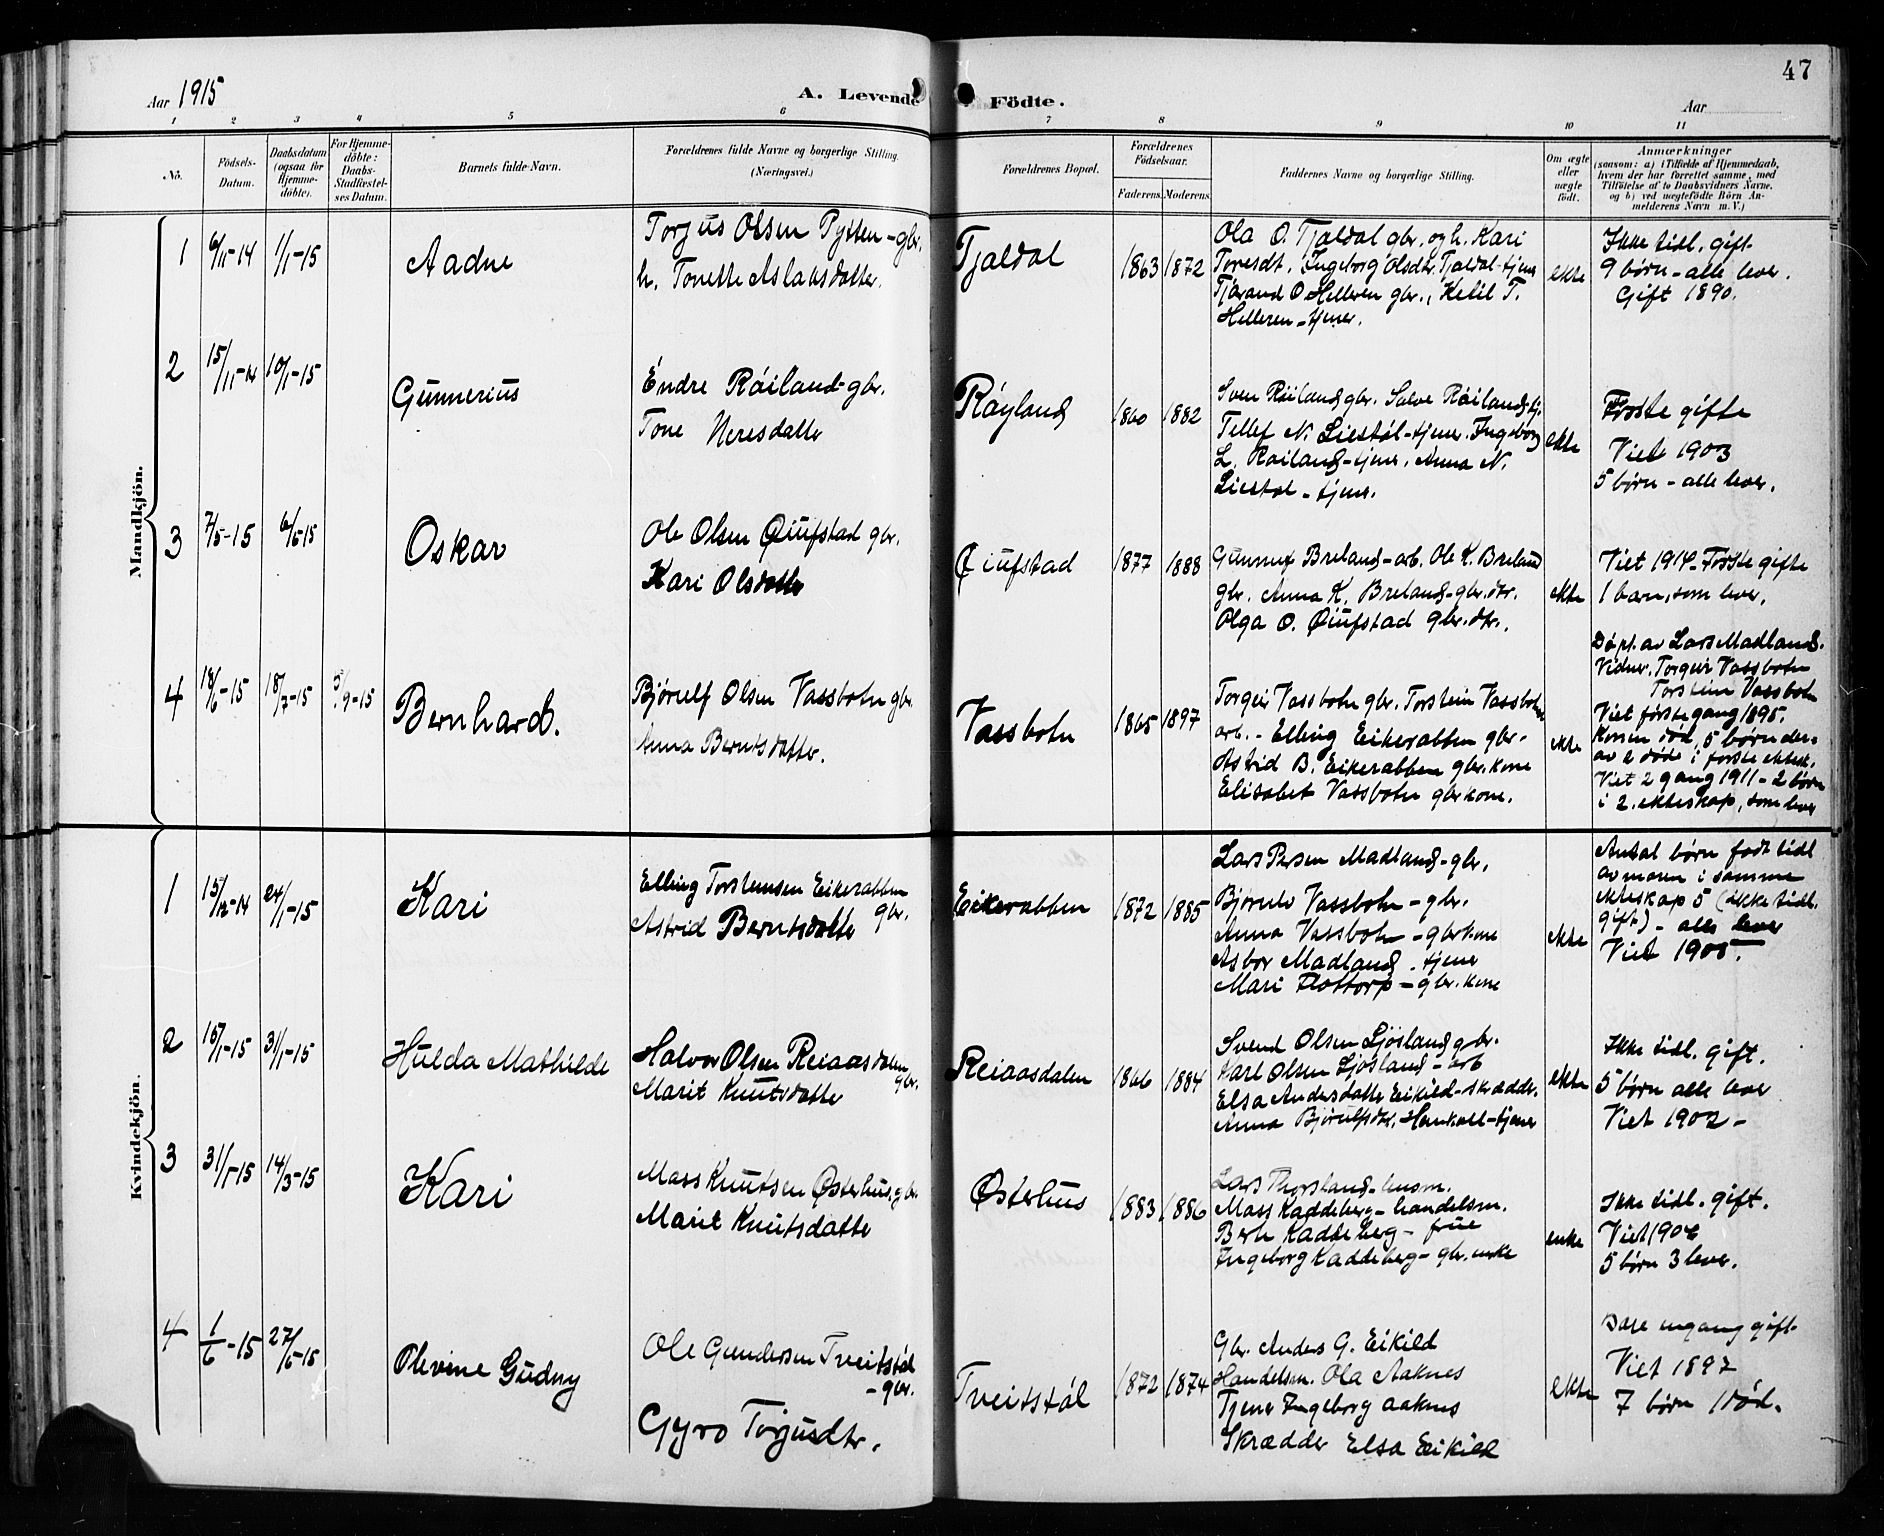 Aar 1915
A. Levende Födte.
47
Aar
1 2 3 4 5 6 7 8 9 10 11
No.
Födsels-Datum.
Daabsdatum (ogsaa for Hjemmedöbte).
For Hjemmedöbte: Daabs-Stadfæstelses Datum.
Barnets fulde Navn.
Forældrenes fulde Navne og borgerlige Stilling.
(Næringsvei.)
Forældrenes Bopæl.
Forældrenes Födselsaar.
Faderens. Moderens.
Faddernes Navne og borgerlige Stilling.
Om ægte eller uægte födt.
Anmærkninger
(saasom: a) i Tilfælde af Hjemmedaab,
hvem der har forrettet samme, med
Tilföielse af to Daabsvidners Navne,
og b) ved uægtefödte Börn An-
melderens Navn m. V.)
Mandkjön.
1 6/11-14 1/1-15 Aadne
Torjus Olsen Pytten - gbr.
h. Tonette Aslaksdatter.
Tjaldal 1863 1872
Ola O. Tjaldal gbr. og h. Kari
Toresdt. Ingeborg Olsdtr. Tjaldal - tjener
Tjærand O Helleren gbr., Ketil T.
Helleren - tjener.
ekte
Ikke tidl. gift
9 børn - alle lever.
Gift 1890.
2 15/11-14 10/1-15 Gunnerius
Endre Røiland gbr.
Tone Neresdatter
Røyland 1860 1882
Sven Røiland gbr. Salve Røiland tj.
Tellef N. Liestøl - tjener. Ingeborg
L. Røiland - tjener, Anna N.
Liestøl - tjener.
ekte
Første gifte
Viet 1903
5 børn - alle lever.
3 7/5-15 6/6-15 Oskar
Ole Olsen Øiufstad gbr.
Kari Olsdatter
Øiufstad 1877 1888
Gunnuf Breland - arb. Ole K. Breland
gbr. Anna K. Breland - gbr. dtr.
Olga O. Øiufstad gbr. dtr.
ekte
Viet 1914 - Første gifte
1 barn, som lever.
4 18/6-15 18/7-15 5/9-15 Bernhard.
Bjørulf Olsen Vassbotn gbr.
Anna Berntsdatter.
Vassbotn 1865 1897
Torgeir Vassbotn gbr. Torstein Vassbotn
arb. - Elling Eikerabben gbr.
Astrid B. Eikerabben gbr. kone
Elisabet Vassbotn gbr kone.
ekte
Døpt av Lars Madland.
Vidner: Torgeir Vassbotn
Torstein Vassbotn
Viet første gang 1895.
Konen død, 5 børn der-
av 2 døde i første ektesk.
Viet 2 gang 1911 - 2 børn
i 2. ekteskap, som lever
Kvindekjön.
1 15/12-14 24/1-15 Kari
Elling Torsteinsen Eikerabben
gbr.
Astrid Berntsdatter
Eikerabben 1872 1885
Lars Persen Madland - gbr.
Bjørulv Vassbotn - gbr.
Anna Vassbotn - gbr kone
Asbor Madland - tjener
Mari Flottorp - gbr. kone
ekte
Antal børn født tidl
av moren i samme
ekteskap 5 (ikke tidl.
gift) - alle lever
Viet 1905.
2 15/1-15 31/1-15 Hulda Mathilde
Halvor Olsen Reiaasdalen
gbr.
Marit Knutsdatter
Reiaasdalen 1866 1884
Svend Olsen Ljosland gbr.
Karl Olsen Ljosland - arb
Elsa Andersdatter Eikild - skrædder.
Anna Bjørulfsdtr. Homkoll - tjener
ekte
Ikke tidl. gift.
5 børn alle lever
Viet 1902 -
3 31/1-15 14/3-15 Kari
Mass Knutsen Østerhus gbr.
Marit Knutsdatter
Østerhus 1883 1886
Lars Thorsland - husm.
Mass Kaddeberg - handelsm.
Berte Kaddeberg - frue
Ingeborg Kaddeberg - gbr. enke
enke
Ikke tidl. gift.
Viet 1904
5 børn 3 lever.
4 1/6-15 27/6-15 Olevine Gudny
Ole Gundersen Tveitstøl
- gbr.
Gyro Torjusdtr.
Tveitstøl 1872 1874
Gbr. Anders G. Eikild
Handelsm. Ola Aaknes
Tjener Ingeborg Aaknes
Skrædder Elsa Eikild
ekte
Bare en gang gift
Viet 1897
7 børn 1 død.